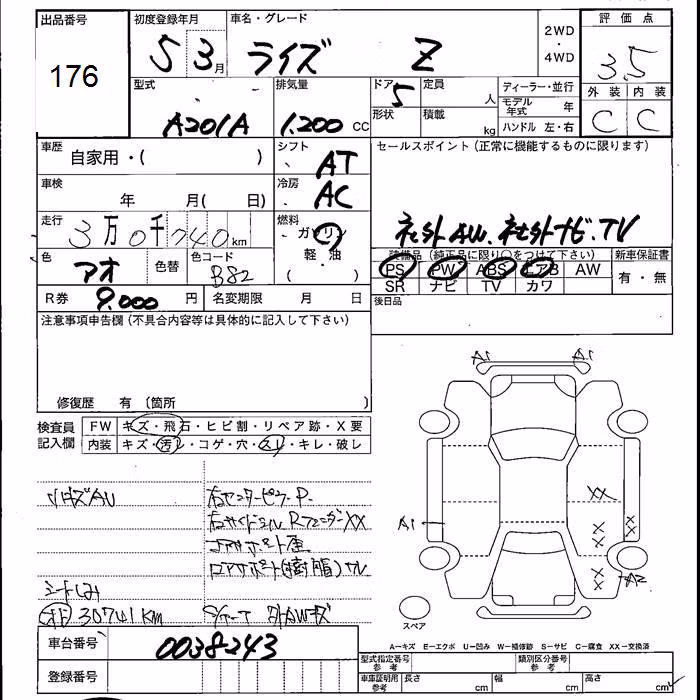 出品番号
176
初度登録年月
5 3月
車名・グレード
ライズ Z
2WD
・
4WD
評価点
3.5
外装 内装
C C
型式
A201A
排気量
1.200 CC
ドア
5
形状
定員
人
積載
kg
ディーラー・並行
モデル年式 年
ハンドル 左・右
車歴
自家用・( )
シフト
AT
セールスポイント (正常に機能するものに限ります)
車検
年 月( 日)
冷房
AC
走行
3万0千740km
燃料
ガソリン
軽・油
( )
社外AW.社外ナビ.TV
色
アオ
色替
色コード
B82
装備品(純正品に限り〇をつけて下さい)
PS PW ABS エアB AW
SR ナビ TV カワ
新車保証書
有・無
R券
9.000 円
名変期限 月 日
後日品
注意事項申告欄(不具合内容等は具体的に記入して下さい)
修復歴 有 (箇所 )
検査員
記入欄
FW キズ・飛石・ヒビ割・リペア跡・X要
内装 キズ・汚レ・コゲ・穴・スレ・キレ・破レ
A1 A1
XX
X
X
X
X
A1
X
X
A2
スペア
右センターピラーP.
シートしみ
30741KM
A−キズ E−エクボ U−凹み W−補修跡 S−サビ C−腐食 XX−交換済
車台番号
0038243
登録番号
型式指定番号
参考
類別区分番号
参考
車庫証明用
参考
長さ cm 幅 cm 高さ cm